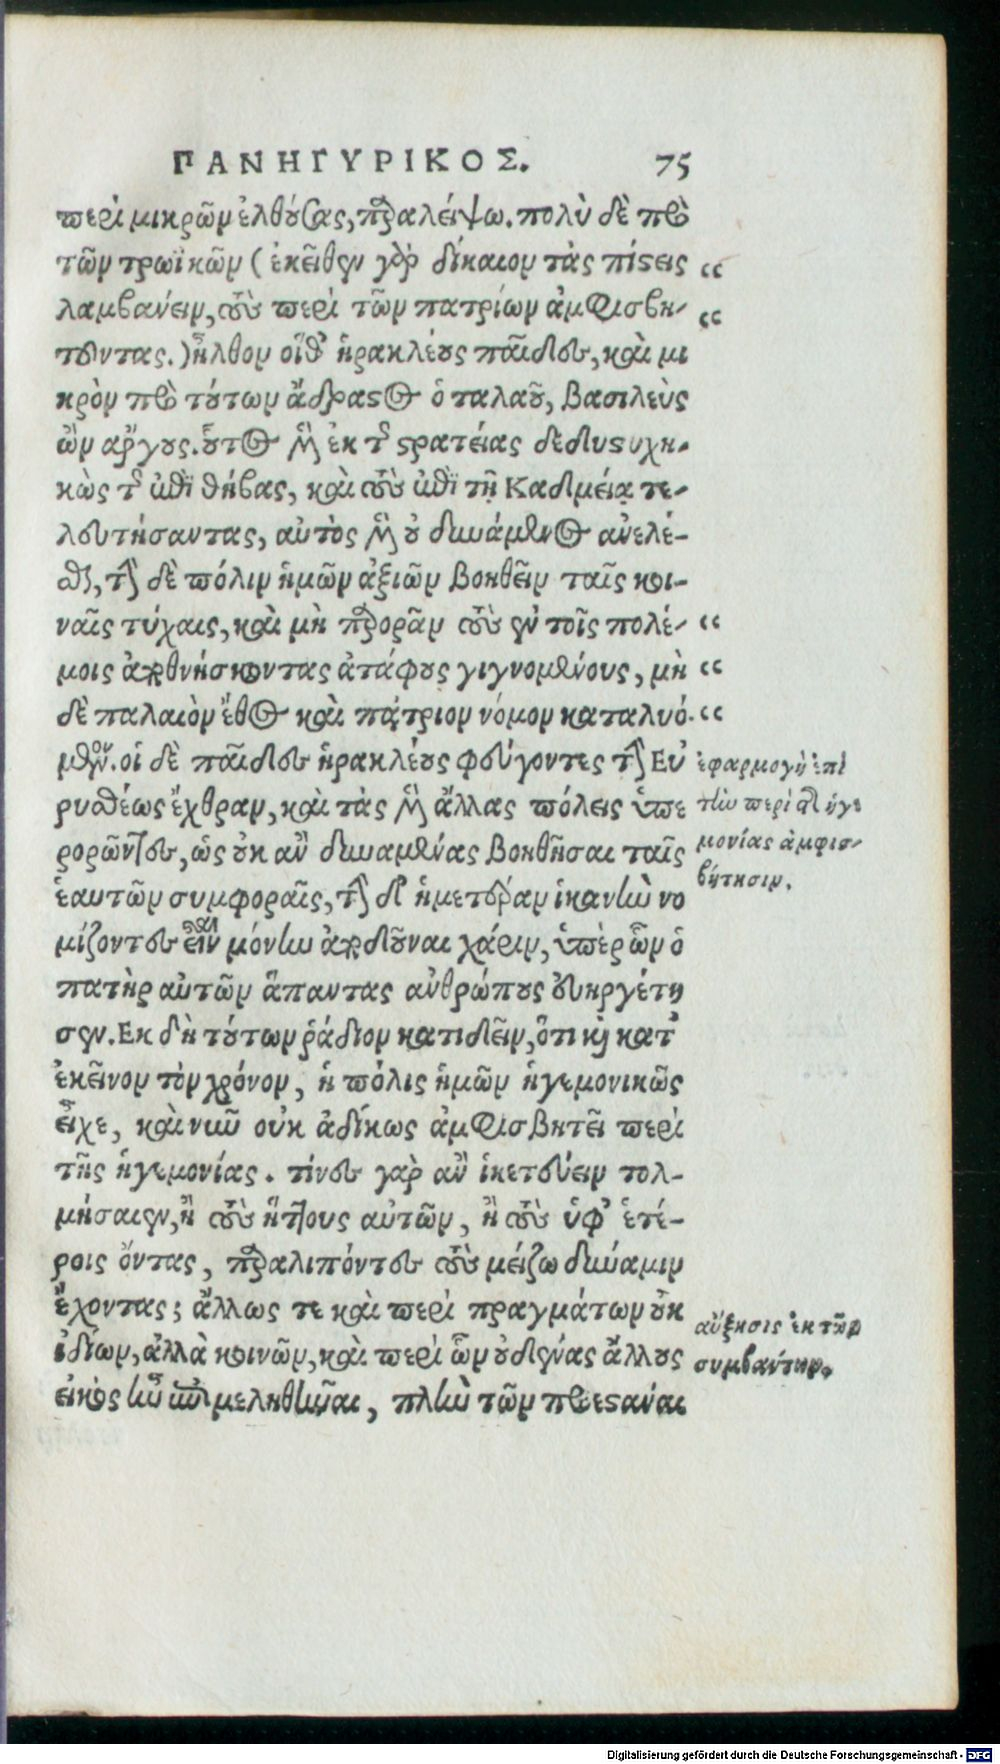 ΠΑΝΗΓΥΡΙΚΟΣ. 75
περὶ μικρῶν ἐλθούσας, παραλείψω. πολὺ δὲ πρὸ
τῶν τρωϊκῶν (ἐκεῖθεν γὰρ δίκαιον τὰς πίστεις “
λαμβάνειν, τοὺς περὶ τῶν πατρίων ἀμφισβη- “
τοῦντας.) ἦλθον οἵθ' ἡρακλέους παῖδες, καὶ μι
κρὸν πρὸ τούτων ἄδραστος ὁ ταλαοῦ, βασιλεὺς
ὢν ἄργους. οὗτος μὲν ἐκ τῆς στρατείας δεδυστυχη-
κὼς τῆς ἐπὶ θήβας, καὶ τοὺς ἐπὶ τῇ Καδμείᾳ τε-
λευτήσαντας, αὐτὸς μὲν οὐ δυνάμενος ἀνελέ-
σθαι, τὴν δὲ πόλιν ἡμῶν ἀξιῶν βοηθεῖν ταῖς κοι-
ναῖς τύχαις, καὶ μὴ παρορᾶν τοὺς ἐν τοῖς πολέ- “
μοις ἀποθνήσκοντας ἀτάφους γιγνομένους, μὴ “
δὲ παλαιὸν ἔθος καὶ πάτριον νόμον καταλυό- “
μενον. οἱ δὲ παῖδες ἡρακλέους φεύγοντες τὴν Εὐ
ρυσθέως ἔχθραν, καὶ τὰς μὲν ἄλλας πόλεις ὑπε
ρορῶντες, ὡς οὐκ ἂν δυναμένας βοηθῆσαι ταῖς
ἑαυτῶν συμφοραῖς, τὴν δ' ἡμετέραν ἱκανὴν νο
μίζοντες εἶναι μόνην ἀποδοῦναι χάριν, ὑπὲρ ὧν ὁ
πατὴρ αὐτῶν ἅπαντας ἀνθρώπους εὐηργέτη
σεν. Εκ δὴ τούτων ῥάδιον κατιδεῖν, ὅτι καὶ κατ'
ἐκεῖνον τὸν χρόνον, ἡ πόλις ἡμῶν ἡγεμονικῶς
εἶχε, καὶ νῦν οὐκ ἀδίκως ἀμφισβητεῖ περὶ
τῆς ἡγεμονίας. τίνες γὰρ ἂν ἱκετεύειν τολ-
μήσαιεν, ἢ τοὺς ἥττους αὐτῶν, ἢ τοὺς ὑφ' ἑτέ-
ροις ὄντας, παραλιπόντες τοὺς μείζω δύναμιν
ἔχοντας; ἄλλως τε καὶ περὶ πραγμάτων οὐκ
ἰδίων, ἀλλὰ κοινῶν, καὶ περὶ ὧν οὐδένας ἄλλους
εἰκὸς ἦν ἐπιμεληθῆναι, πλὴν τῶν προεστάναι
ἐφαρμογὴ ἐπὶ
τὴν περὶ τῆς ἡγε
μονίας ἀμφισ-
βήτησιν.
αὔξησις ἐκ τῶν
συμβάντων.
Digitalisierung gefördert durch die Deutsche Forschungsgemeinschaft - DFG